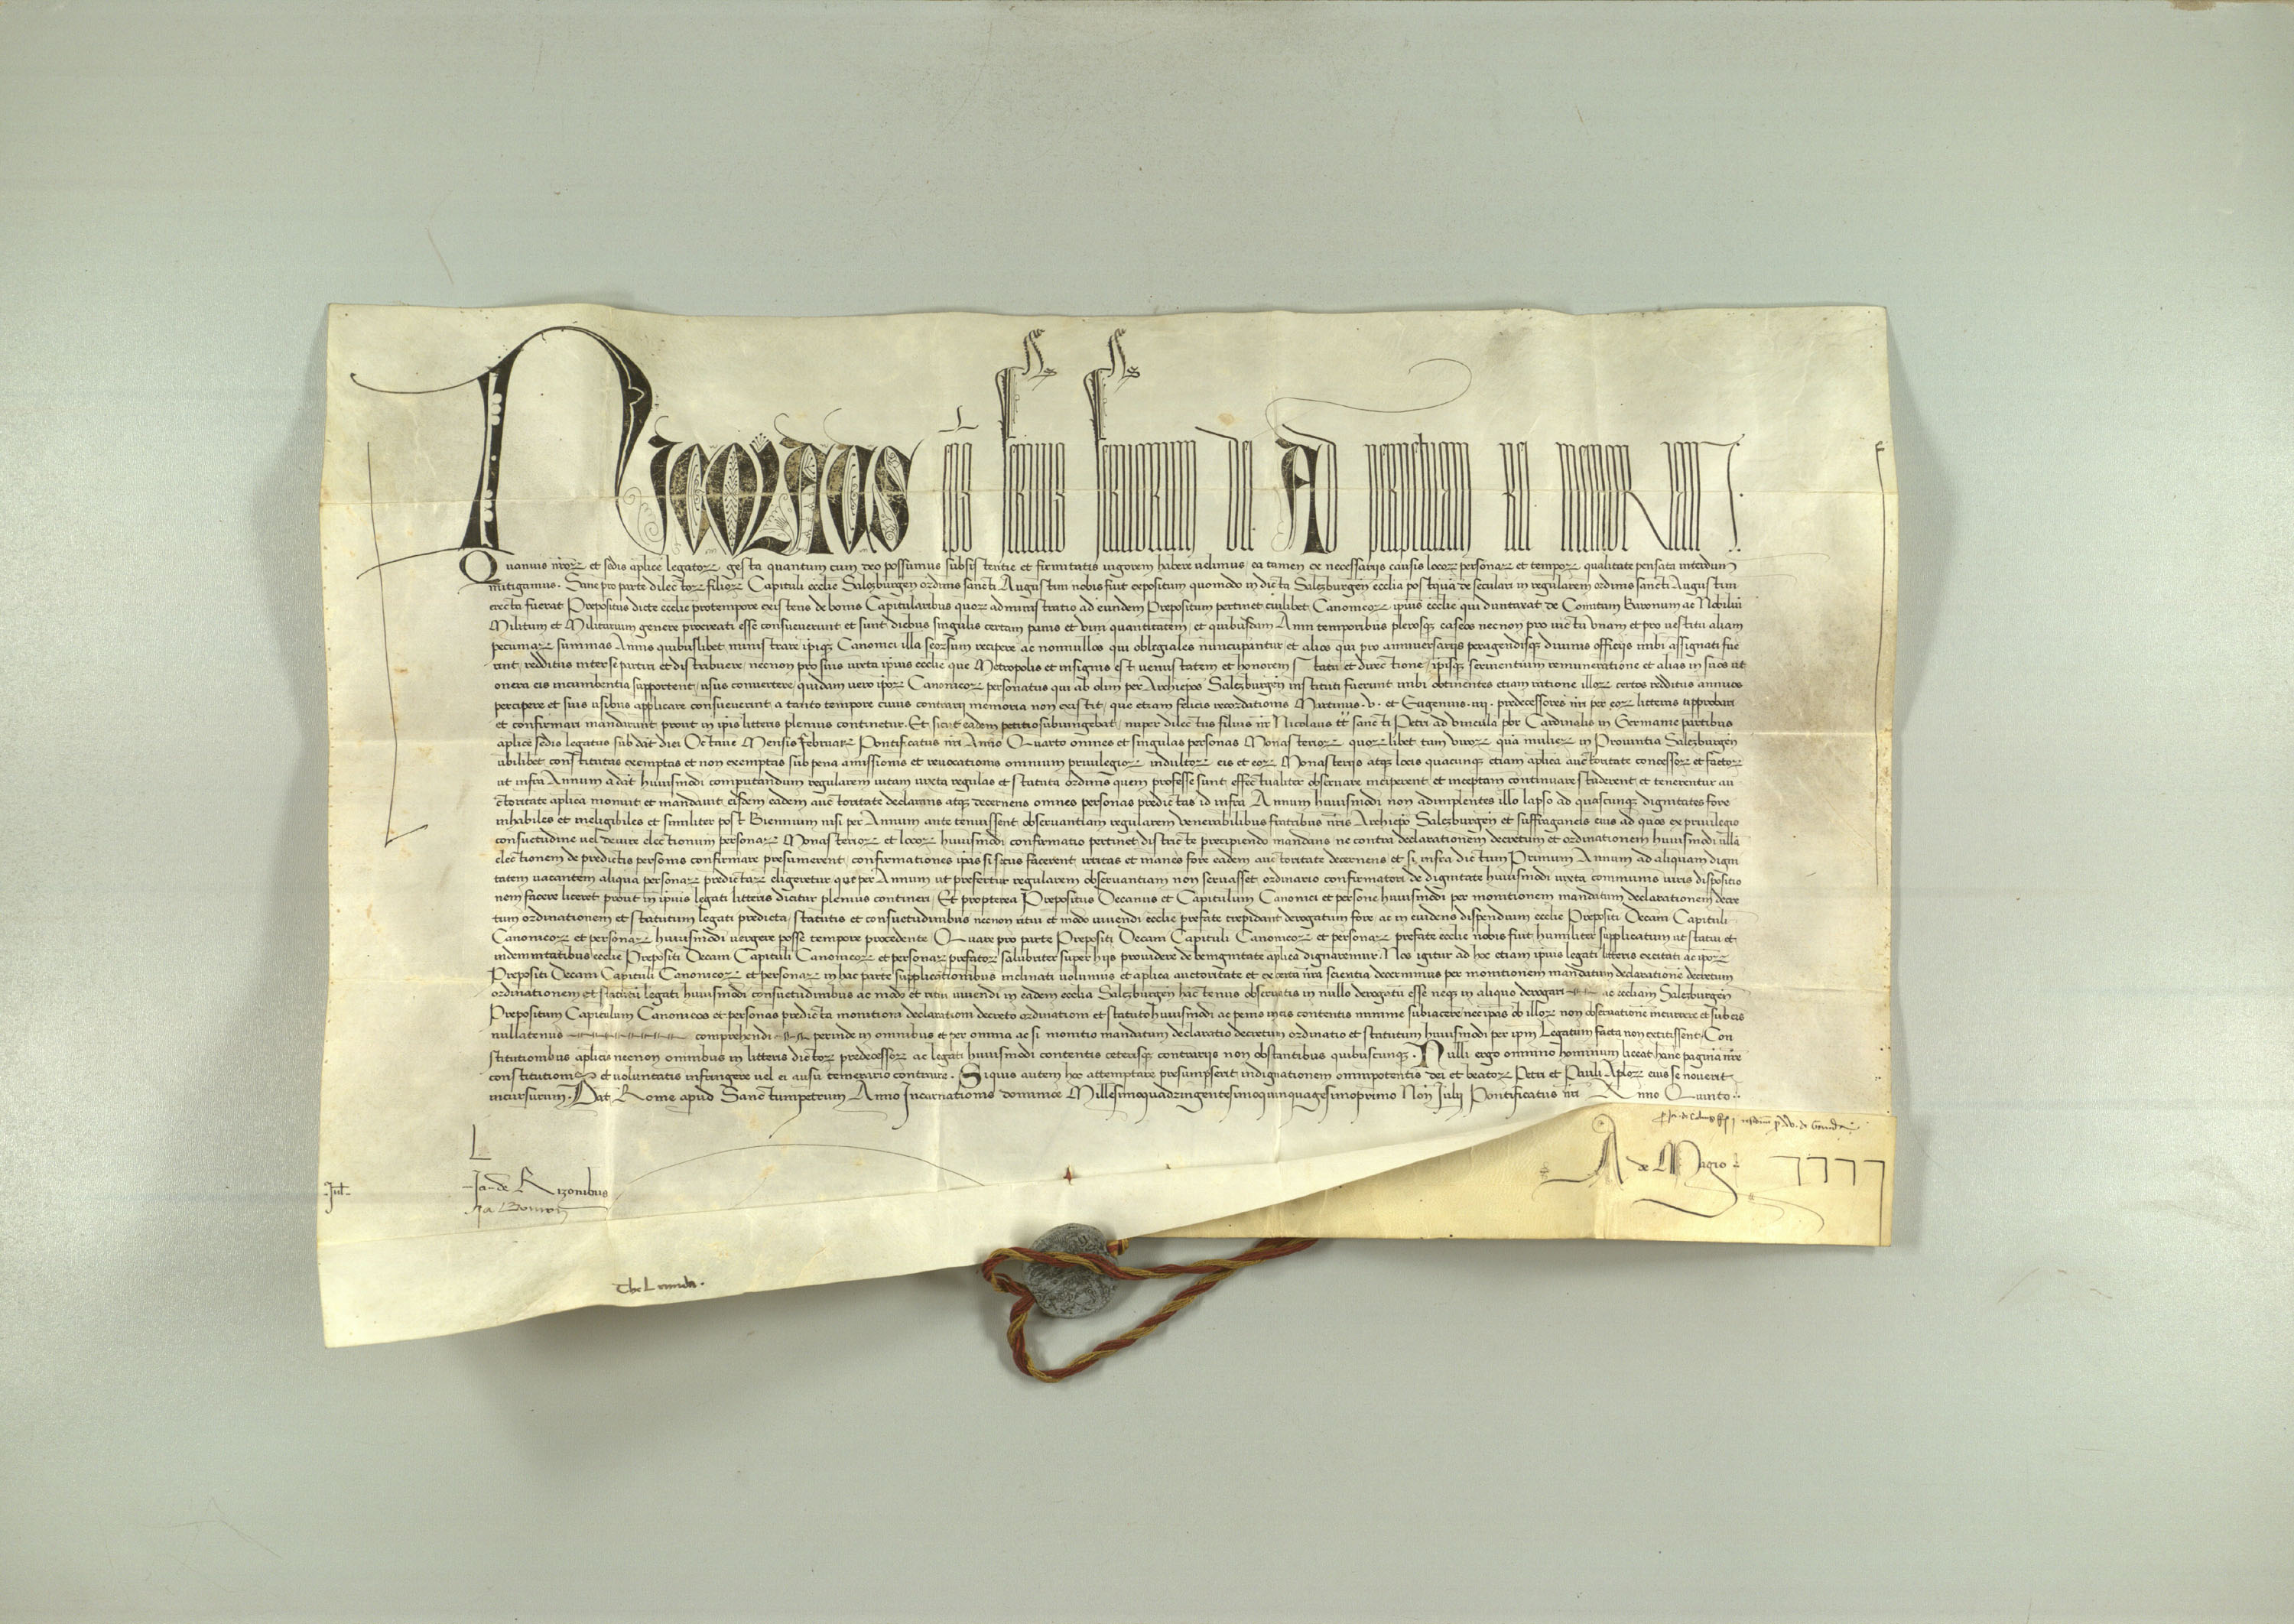 Nicolaus ep̄s seruus seruorum dei Ad perpetuam rei memoriam
Quamuis nr̄oꝝ et sedis aplice legatoꝝ gesta quantum cum deo possumus subsistentie et firmitatis uigorem habere uelimus ea tamen ex necessarijs causis locoꝝ personaꝝ et tempoꝝ qualitate pensata interdum
mitigamus. Sane pro parte dilectoꝝ filioꝝ Capituli ecclie Salczburgen̄ ordinis sancti Augustini nobis fuit expositum quomodo in dicta Salczburgen̄ ecclia postquā de seculari in regularem ordinis sancti Augustini
erecta fuerat Prepositus dicte ecclie protempore existens de bonis Capitularibus quoꝝ administratio ad eundem Prepositum pertinet cuilibet Canonicoꝝ ipius ecclie qui duntaxat de Comitum Baronum ac Nobiliū
Militum et Militarium genere procreati esse consueuerunt et sunt diebus singulis certam panis et uini quantitatem et quibusdam Anni temporibus plerosqꝫ caseos necnon pro uictu unam et pro uestitu aliam
pecuniaꝝ summas Annis quibuslibet ministrare ipiqꝫ Canonici illa seorsum recipere ac nonnullos qui oblegiales nuncupantur et alios qui pro anniuersarijs peragendisqꝫ diuinis officijs inibi assignati fue
runt redditus inter se partiri et distribuere necnon pro suis iuxta ipius ecclie que Metropolis et insignis est uenustatem et honorem statu et directione ipisqꝫ seruientium remuneratione et alias in suos ut
onera eis incumbentia supportent usus conuertere quidam uero ipoꝝ Canonicoꝝ personatus qui ab olim per Archiepos Salczburgen̄ instituti fuerunt inibi obtinentes etiam ratione illoꝝ certos redditus annuos
percipere et suis usibus applicare consueuerint a tanto tempore cuius contrarij memoria non existit que etiam felicis recordationis Martinus .v. et Eugenius .iiij. predecessores nr̄i per eoꝝ litteras approbari
et confirmari mandarunt prout in ipis litteris plenius continetur. Et sicut eadem petitio subiungebat nuper dilectus filius nr̄ Nicolaus tt̄ sancti Petri ad uincula pbr Cardinalis in Germanie partibus
aplice sedis legatus sub dat̄ diei Octaue Mensis Februarꝝ Pontificatus nr̄i Anno Quarto omnes et singulas personas Monasterioꝝ quoꝝlibet tam uiroꝝ quā mulieꝝ in Prouintia Salczburgen̄
ubilibet constitutas exemptas et non exemptas sub pena amissionis et reuocationis omnium priuilegioꝝ indultoꝝ eis et eoꝝ Monasterijs atqꝫ locis quacunqꝫ etiam aplica auctoritate concessoꝝ et factoꝝ
ut infra Annum a dat̄ huiusmodi computandum regularem uitam iuxta regulas et statuta ordinis quem professe sunt effectualiter obseruare inciperent et inceptam continuare studerent et tenerentur au
ctoritate aplica monuit et mandauit eisdem eadem auctoritate declarans atqꝫ decernens omnes personas predictas id infra Annum huiusmodi non adimplentes illo lapso ad quascunqꝫ dignitates fore
inhabiles et ineligibiles et similiter post Biennium nisi per Annum ante tenuissent obseruantiam regularem uenerabilibus fratribus nr̄is Archiepō Salczburgen̄ et suffraganeis eius ad quos ex priuilegio
consuetudine uel de iure electionum personaꝝ Monasterioꝝ et locoꝝ huiusmodi confirmatio pertinet districte precipiendo mandans ne contra declarationem decretum et ordinationem huiusmodi ullā
electionem de predictis personis confirmare presumerent confirmationes ipas si secus facerent irritas et inanes fore eadem auctoritate decernens et si infra dictum Primum Annum ad aliquam digni
tatem uacantem aliqua personaꝝ predictaꝝ eligeretur que per Annum ut prefertur regularem obseruantiam non seruasset ordinario confirmatori de dignitate huiusmodi iuxta communis iuris dispositio
nem facere liceret prout in ipius legati litteris dicitur plenius contineri. Et propterea Prepositus Decanus et Capitulum Canonici et persone huiusmodi per monitionem mandatum declarationem decre
tum ordinationem et statutum legati predicta statutis et consuetudinibus necnon ritui et modo uiuendi ecclie prefate trepidant derogatum fore ac in euidens dispendium ecclie Prepositi Decani Capituli
Canonicoꝝ et personaꝝ huiusmodi uergere posse tempore procedente Quare pro parte Prepositi Decani Capituli Canonicoꝝ et personaꝝ prefate ecclie nobis fuit humiliter supplicatum ut statui et
indemnitatibus ecclie Prepositi Decani Capituli Canonicoꝝ et personaꝝ prefatoꝝ salubriter super hijs prouidere de benignitate aplica dignaremur. Nos igitur ad hoc etiam ipius legati litteris excitati ac ipoꝝ
Prepositi Decani Capituli Canonicoꝝ et personaꝝ in hac parte supplicationibus inclinati uolumus et aplica auctoritate et ex certa nr̄a scientia decernimus per monitionem mandatum declarationē decretum
ordinationem et statutū legati huiusmodi consuetudinibus ac modo et ritui uiuendi in eadem ecclesia Salczburgen̄ hactenus obseruatis in nullo derogatū esse neqꝫ in aliquo derogari ac eccliam Salczburgen̄
Prepositum Capitulum Canonicos et personas predicta monitioni declarationi decreto ordinationi et statuto huiusmodi ac penis in eis contentis minime subiacere nec ipas ob illoꝝ non obseruatione incurrere et sub eis
nullatenus comprehendi perinde in omnibus et per omnia ac si monitio mandatum declaratio decretum ordinatio et statutum huiusmodi per ipm Legatum facta non extitissent. Con
stitutionibus aplicis necnon omnibus in litteris dictoꝝ predecessoꝝ ac legati huiusmodi contentis ceterisqꝫ contrarijs non obstantibus quibuscunqꝫ. Nulli ergo omnino hominum liceat hanc paginā nr̄e
constitutionis et uoluntatis infringere uel ei ausu temerario contraire. Siquis autem hoc attemptare presumpserit indignationem omnipotentis dei et beatoꝝ Petri et Pauli Aploꝝ eius se nouerit
incursurum. Dat̄ Rome apud Sanctumpetrum Anno Incarnationis dominice Millesimoquadringentesimoquinquagesimoprimo Non̄ Julij Pontificatus nr̄i Anno Quinto.
A de Magio
L
Jul̄
Ja. de Rizonibus